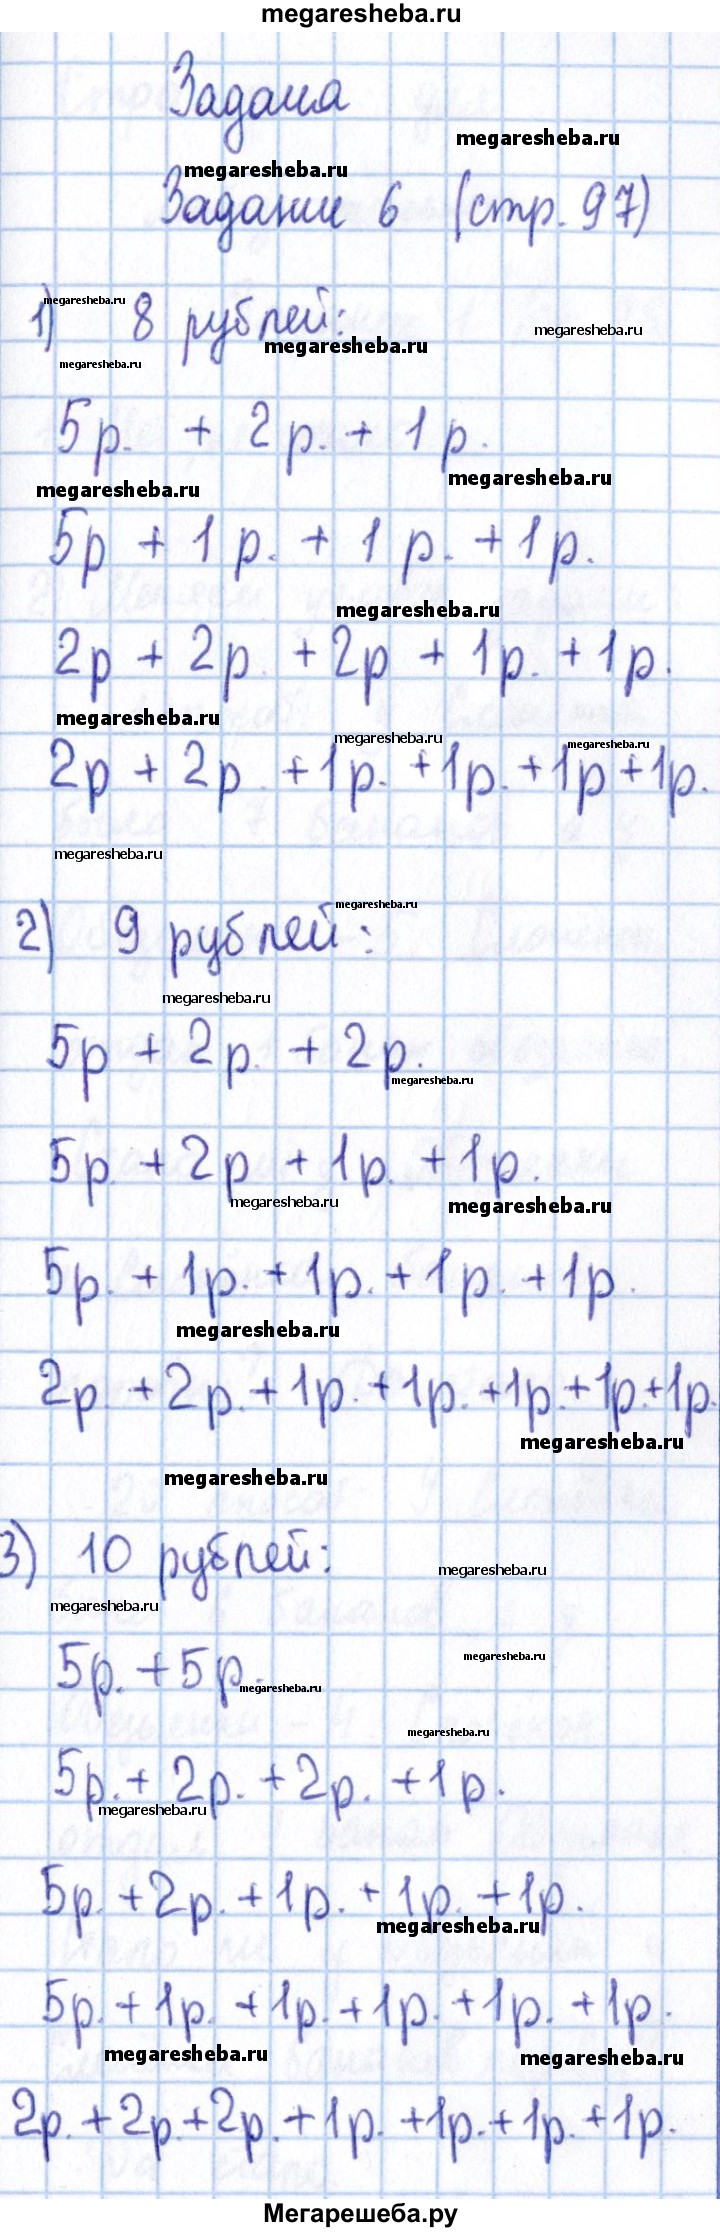 megaresheba.ru
Задача
megaresheba.ru
megaresheba.ru
Задание 6 (стр. 97)
megaresheba.ru
1) 8 рублей:
megaresheba.ru
megaresheba.ru
megaresheba.ru
5р. + 2р. + 1р.
megaresheba.ru
megaresheba.ru
5р + 1р. + 1р. + 1р.
megaresheba.ru
2р + 2р. + 2р + 1р. + 1р.
megaresheba.ru
megaresheba.ru
megaresheba.ru
2р + 2р. + 1р. + 1р. + 1р + 1р.
megaresheba.ru
megaresheba.ru
2) 9 рублей:
megaresheba.ru
5р + 2р. + 2р.
megaresheba.ru
5р. + 2р + 1р. + 1р.
megaresheba.ru
megaresheba.ru
5р. + 1р. + 1р. + 1р. + 1р.
megaresheba.ru
2р. + 2р. + 1р. + 1р. + 1р. + 1р. + 1р.
megaresheba.ru
megaresheba.ru
3) 10 рублей:
megaresheba.ru
megaresheba.ru
5р. + 5р.
megaresheba.ru
megaresheba.ru
megaresheba.ru
5р. + 2р. + 2р. + 1р.
megaresheba.ru
5р. + 2р. + 1р. + 1р. + 1р.
megaresheba.ru
5р. + 1р. + 1р. + 1р. + 1р. + 1р.
megaresheba.ru
megaresheba.ru
2р. + 2р. + 2р. + 1р. + 1р. + 1р. + 1р.
Мегарешеба.ру